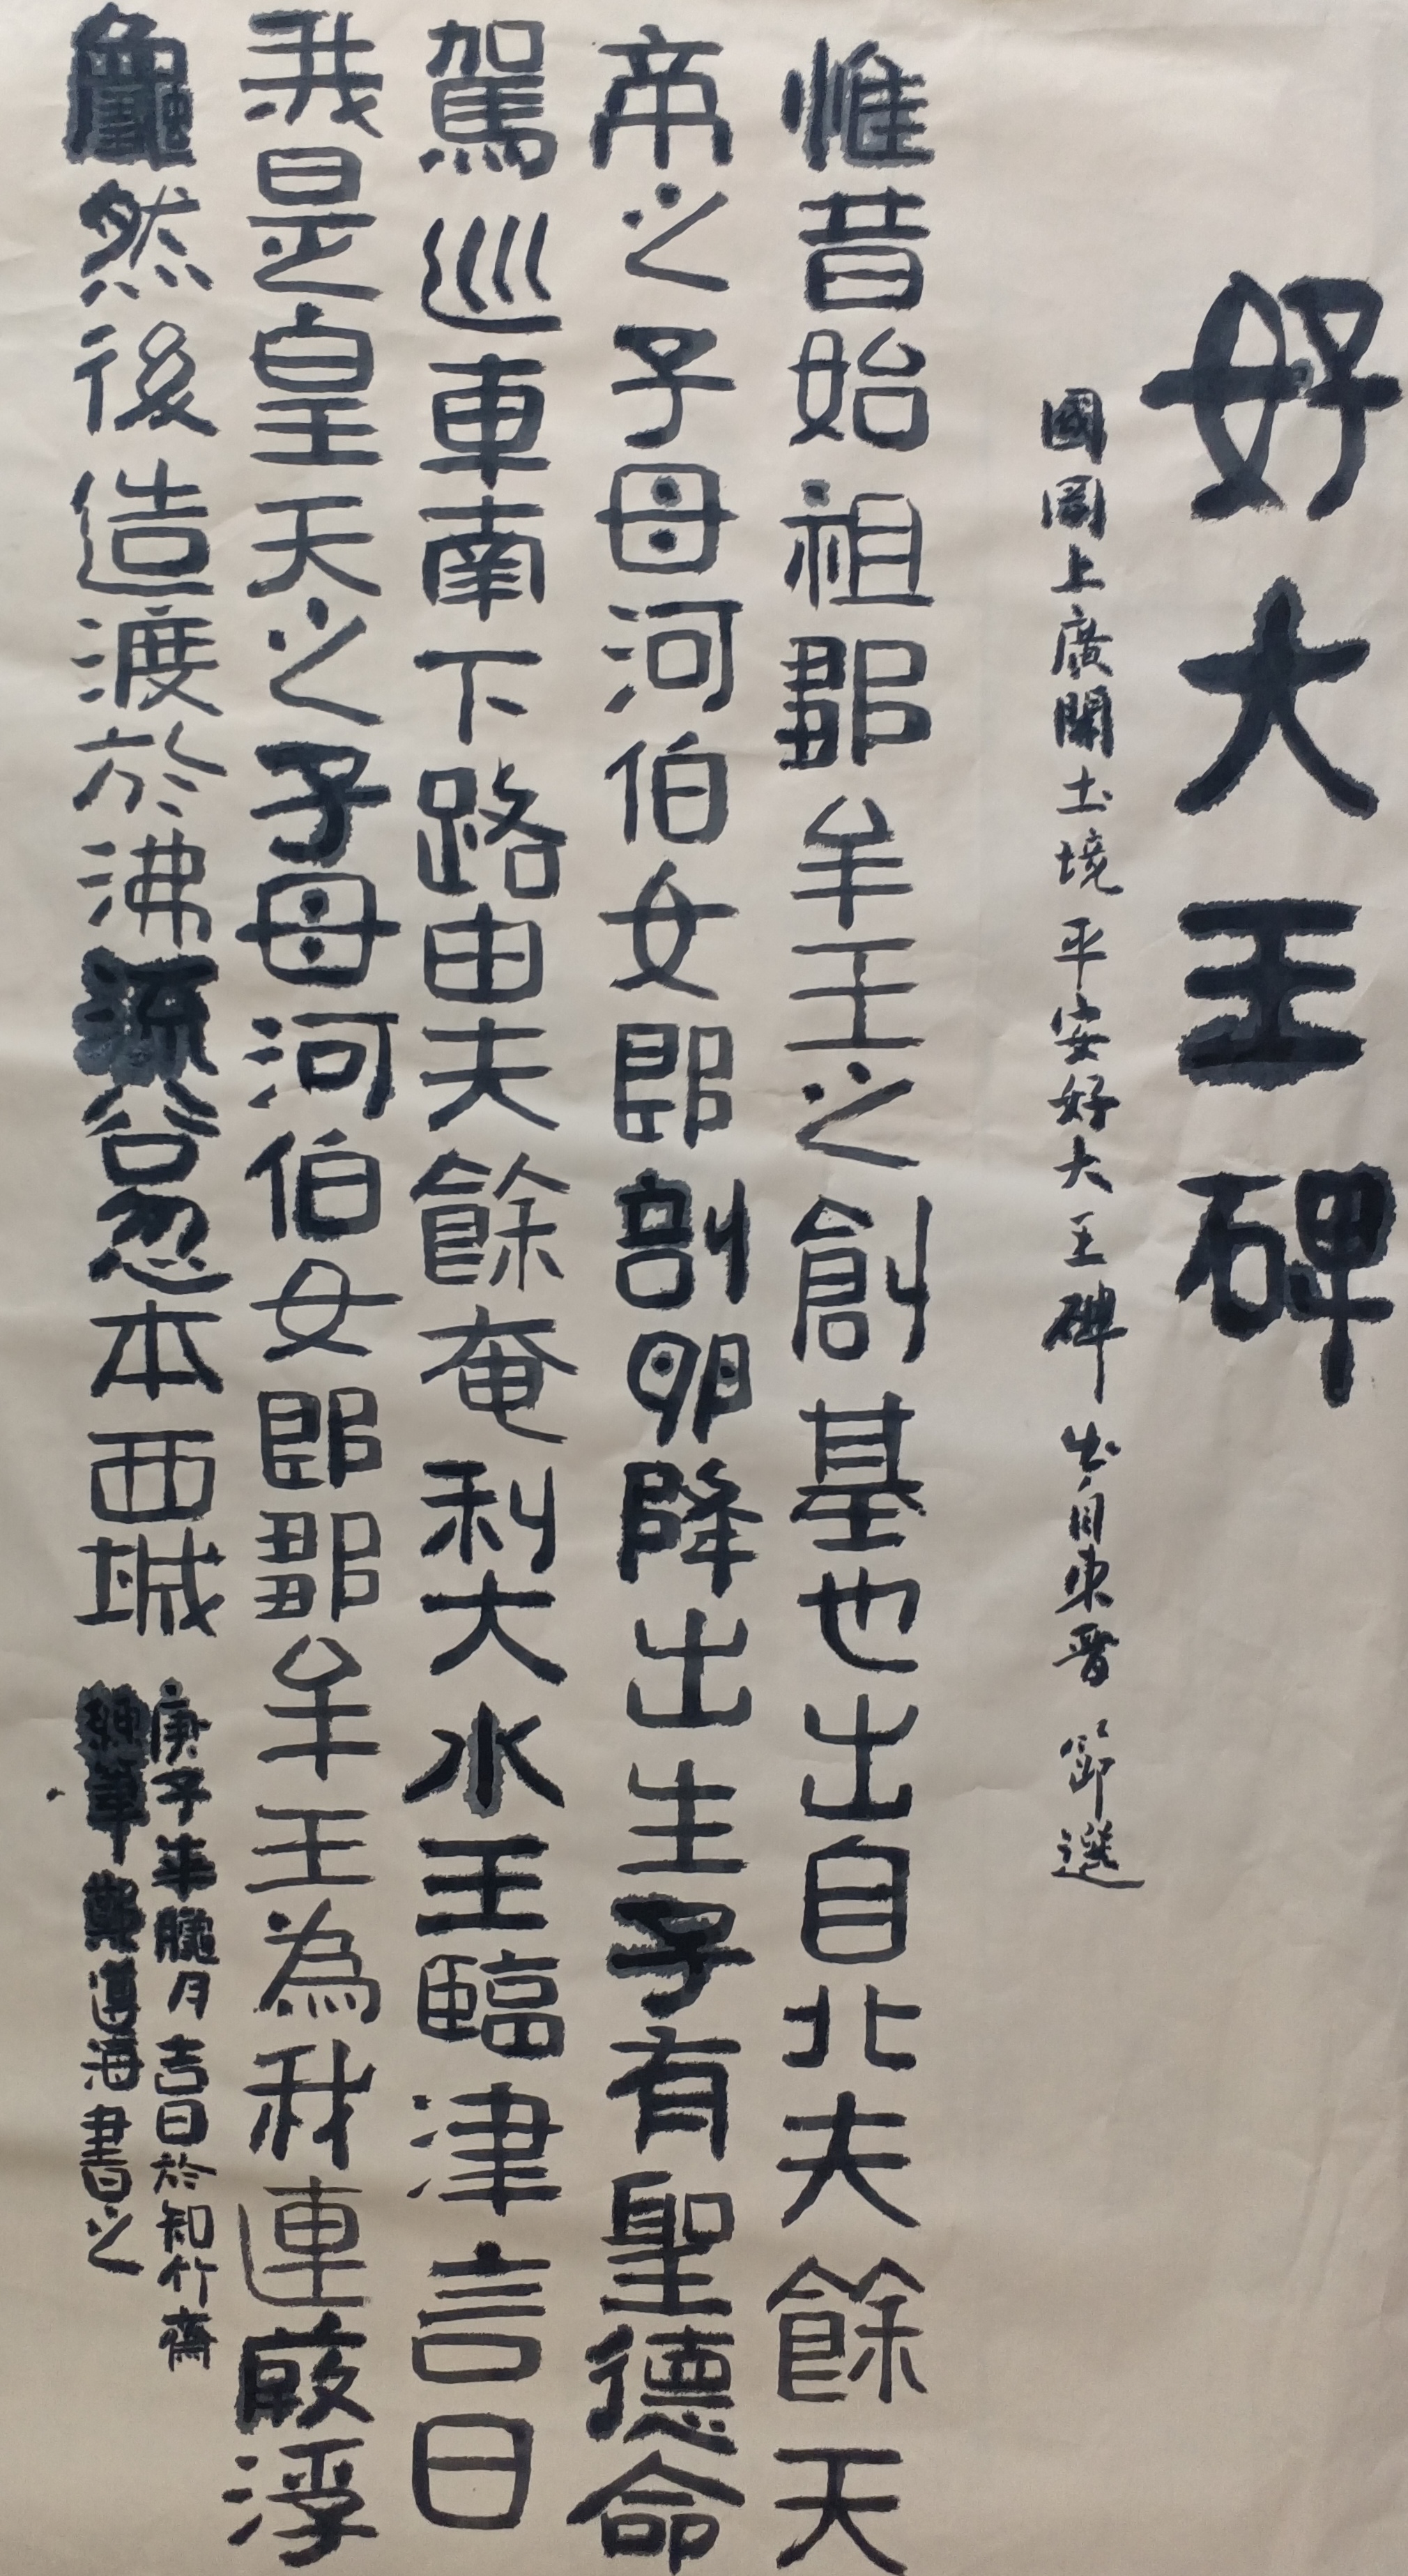 好大王碑
國岡上廣開土境平安好大王碑出自東晉節選
惟昔始祖鄒牟王之創基也出自北夫餘天
帝之子母河伯女郎剖卵降出生子有聖德命
駕巡車南下路由夫餘奄利大水王臨津言曰
我是皇天之子母河伯女郎鄒牟王為我連葭浮
龜然後造渡於沸流谷忽本西城
庚子年臘月吉日於知竹齋
鄭遵海書之